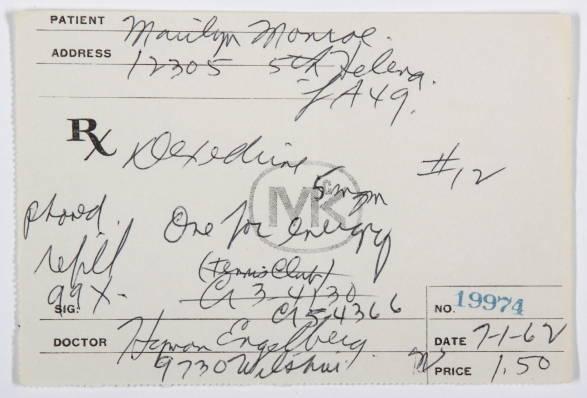 PATIENT Marilyn Monroe.
ADDRESS 12305 5th Helena.
LA 49.
Rx Dexedrine #12
5 mgm
McK
phoned. One for energy
refill (Tennis Club)
99X. Cr 3-4130
SIG. Cr 54366
NO. 19974
DOCTOR Hyman Engelberg. DATE 7-1-62
9730 Wilshire PRICE 1.50